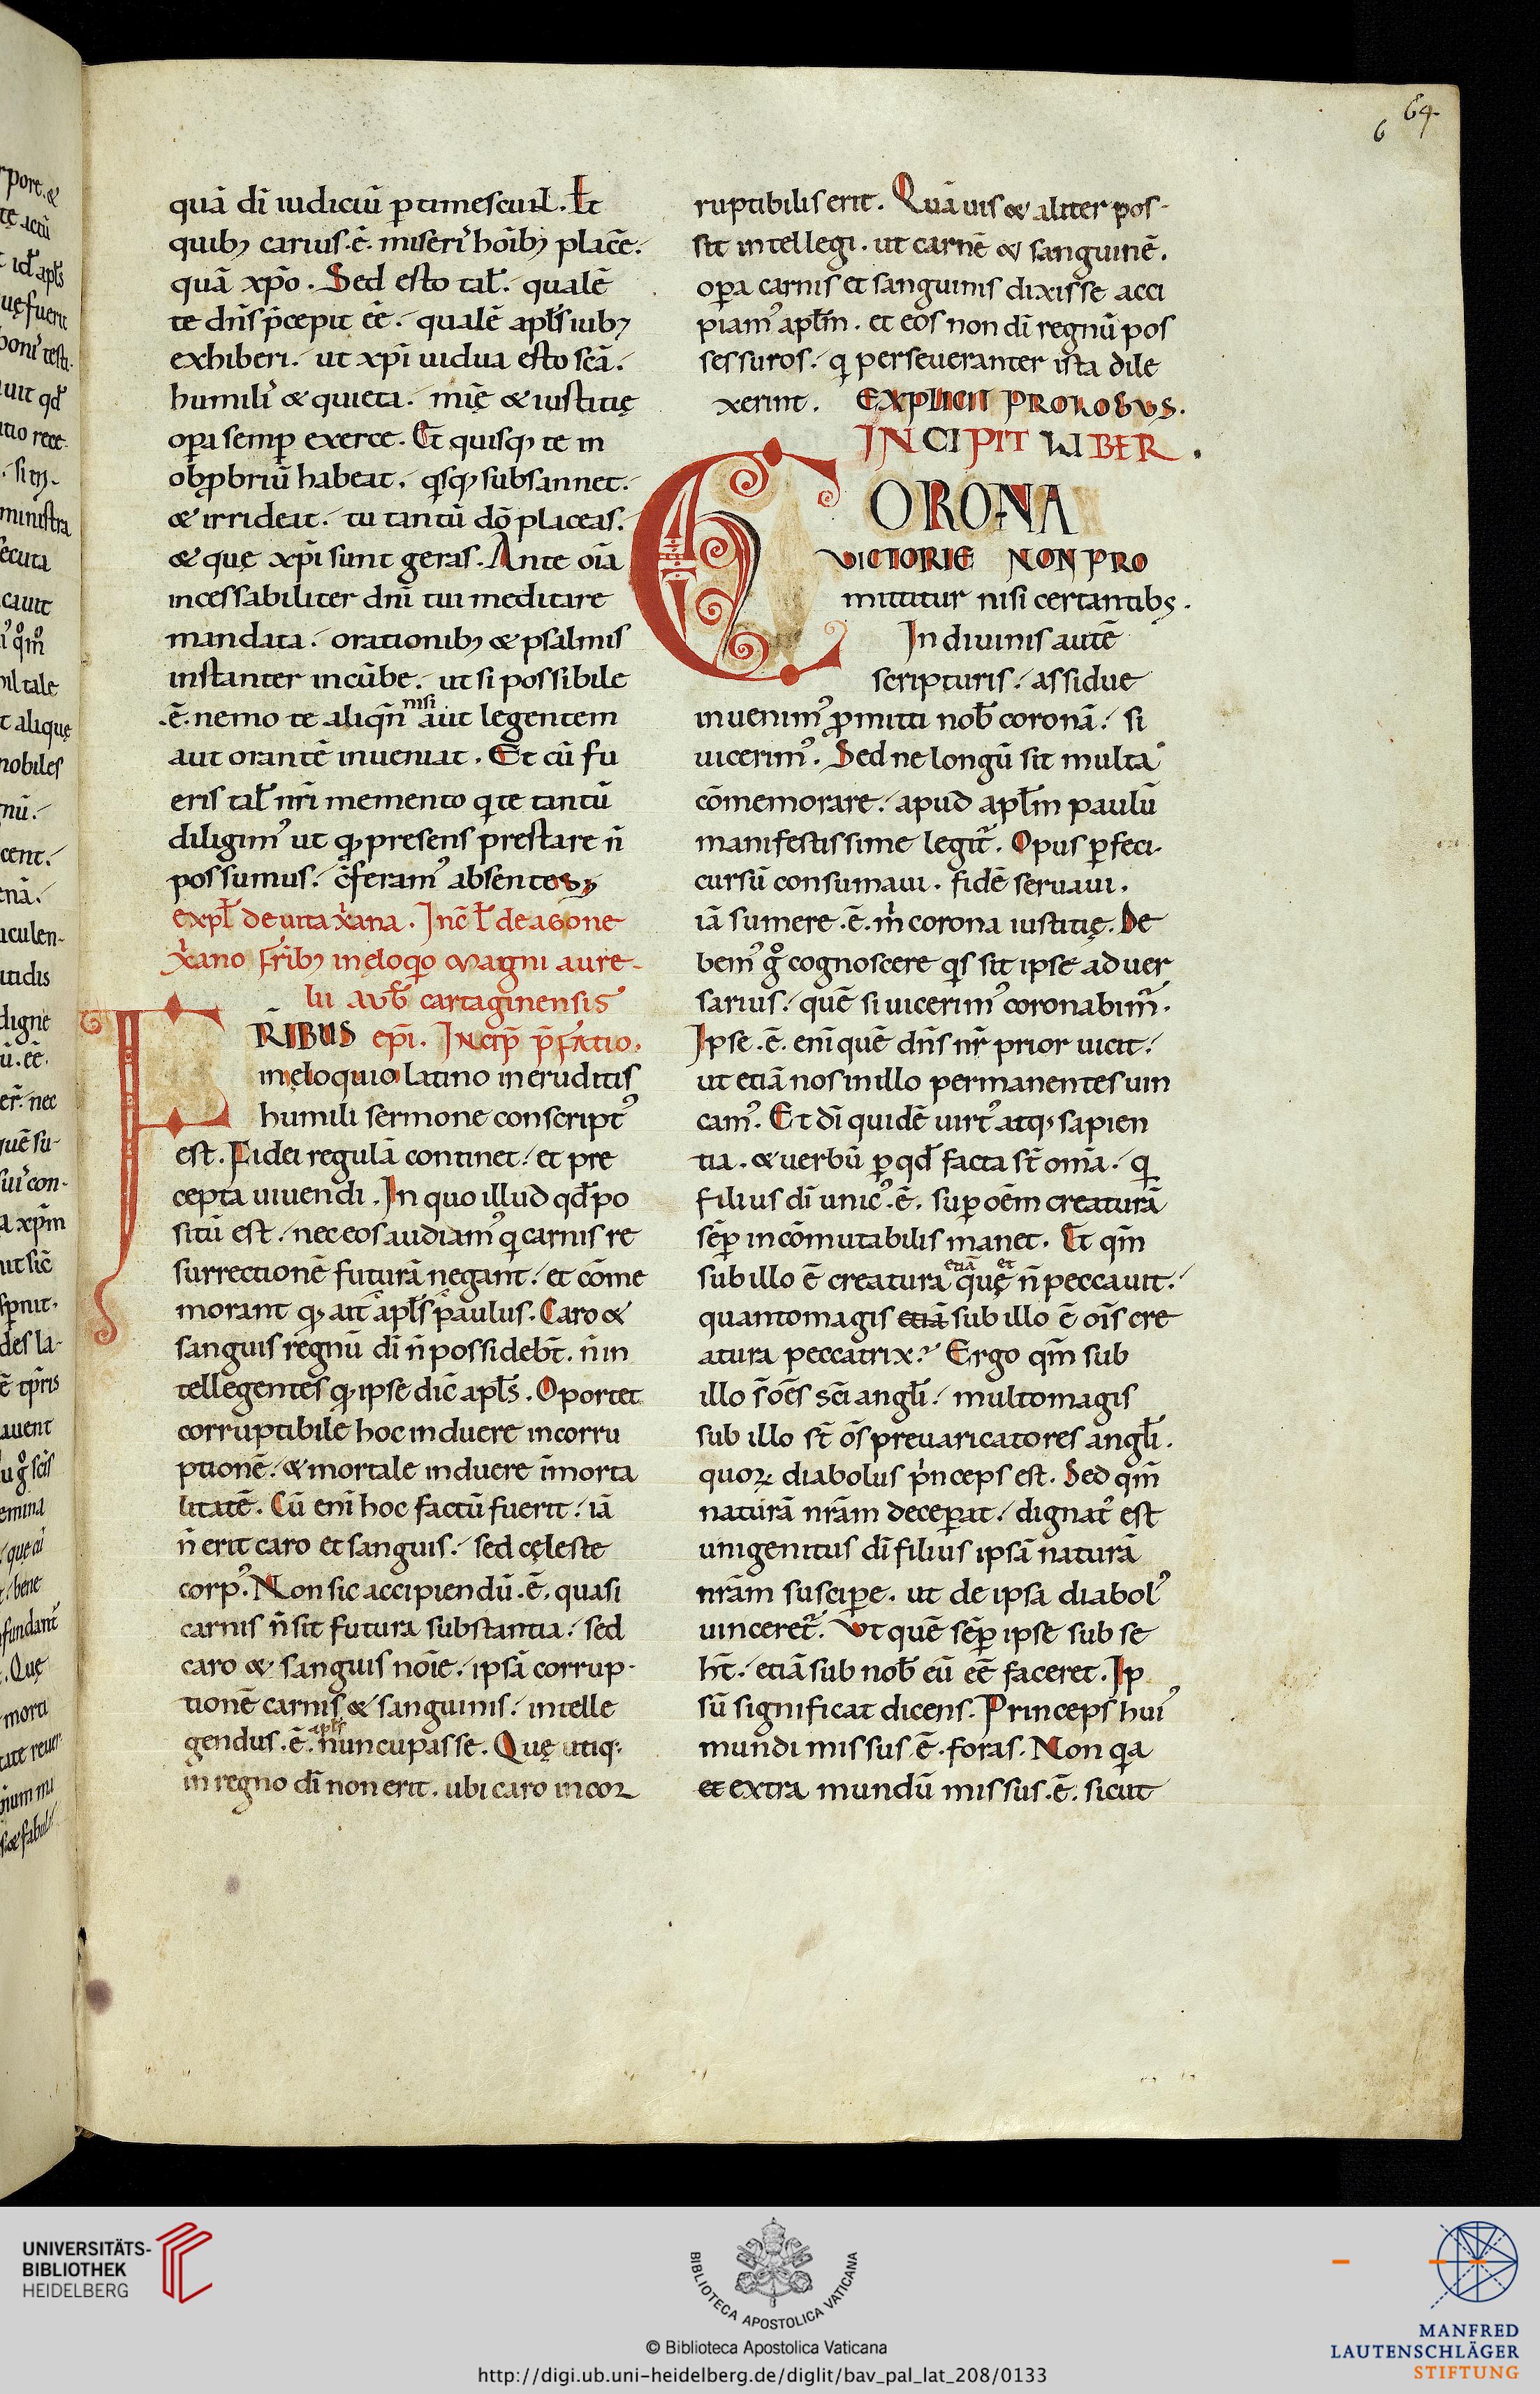 64
6
quā dī iudiciū ptimescunt. Et
quibꝫ carius .ē. miseri' hoībꝫ placē.
quā xp̄o. Sed esto tal̄. qualē
te dn̄s p̄cepit eē. qualē apl̄s iubꝫ
exhiberi. ut xp̄i uidua esto sc̄ā.
humili' & quieta. mīę & iustitię
opa semp exerce. Et quisqꝫ te in
obpbriū habeat. qsqꝫ subsannet.
& irrideat. tu tantū dō placeas.
& quę xp̄i sunt geras. Ante oīa
incessabiliter dnī tui meditare
mandata. orationibꝫ & psalmis
instanter incūbe. ut si possibile
nisi
.ē. nemo te aliqn̄ aut legentem
aut orantē inueniat. Et cū fu
eris tal̄ nr̄i memento q te tantū
diligim' ut qꝫ presens prestare n̄
possumus. c̄feram' absentes;
expl̄ de uita xāna. Inc̄ l̄ de agone
xāno frībꝫ in ęloqo magni aure-
lii aug̅ cartaginensis
FRIBUS epī. Incip p̄fatio.
in ęloquio latino ineruditis
humili sermone conscript'
est. Fidei regulā continet. et pre
cepta uiuendi. In quo illud qd̄ po
sitū est. nec eos audiam' q carnis re
surrectionē futurā negant. et cōme
morant qꝫ ait apl̄s paulus. Caro &
sanguis regnū dī n̄ possidebt̄. n̄ in
tellegentes qꝫ ipse dic̄ apl̄s. Oportet
corruptibile hoc induere incorru
ptionē. & mortale induere īmorta
litatē. Cū enī hoc factū fuerit. iā
n̄ erit caro et sanguis. sed cęleste
corp'. Non sic accipiendū .ē. quasi
carnis n̄ sit futura substantia. sed
caro & sanguis noīe. ipsā corrup-
tionē carnis & sanguinis. intelle
apl̄s
gendus .ē. nuncupasse. Quę utiq.
in regno dī non erit. ubi caro incor
ruptibilis erit. Quāuis & aliter pos-
sit intellegi. ut carnē & sanguinē.
opa carnis et sanguinis dixisse acci
piam' apl̄m. et eos non dī regnū pos
sessuros. q perseueranter ista dile
xerint. EXPLICIT PROLOGVS.
INCIPIT LIBER.
CORONA
VICTORIE NON PRO
mittitur nisi certantibꝫ.
In diuinis autē
scripturis. assidue
inuenim' pmitti nob̄ coronā. si
uicerim'. Sed ne longū sit multa
cōmemorare. apud apl̄m paulū
manifestissime legit̄. Opus pfeci.
cursū consumaui. fidē seruaui.
iā sumere .ē. m̄ corona iustitię. De
bem' g° cognoscere qs sit ipse aduer
sarius. quē si uicerim' coronabim̄.
Ipse .ē. enī quē dn̄s nr̄ prior uicit.
ut etiā nos in illo permanentes uin
cam'. Et dī quidē uirt' atqꝫ sapien
tia. & uerbū p qd̄ facta st̄ om̄a. q
filius dī unic' .ē. sup oēm creaturā
sēp incōmutabilis manet. Et qm̄
etiā et
sub illo ē creatura quę n̄ peccauit.
quantomagis etiā sub illo ē oīs cre
atura peccatrix? Ergo qm̄ sub
illo s̄ oēs sc̄i angl̄i. multomagis
sub illo st̄ ōs preuaricatores angl̄i.
quoꝝ diabolus pⁱnceps est. Sed qm̄
naturā nr̄am deceperat. dignat' est
unigenitus dī filius ipsā naturā
nr̄am suscipe. ut de ipsa diabol'
uinceret̄. Vt quē sēp ipse sub se
ht̄. etiā sub nob̄ eū eē faceret. Ip
sū significat dicens. Princeps hui'
mundi missus .ē. foras. Non qa
et extra mundū missus .ē. sicut
UNIVERSITÄTS-
BIBLIOTHEK
HEIDELBERG
BIBLIOTECA APOSTOLICA VATICANA
© Biblioteca Apostolica Vaticana
http://digi.ub.uni-heidelberg.de/diglit/bav_pal_lat_208/0133
MANFRED
LAUTENSCHLÄGER
STIFTUNG